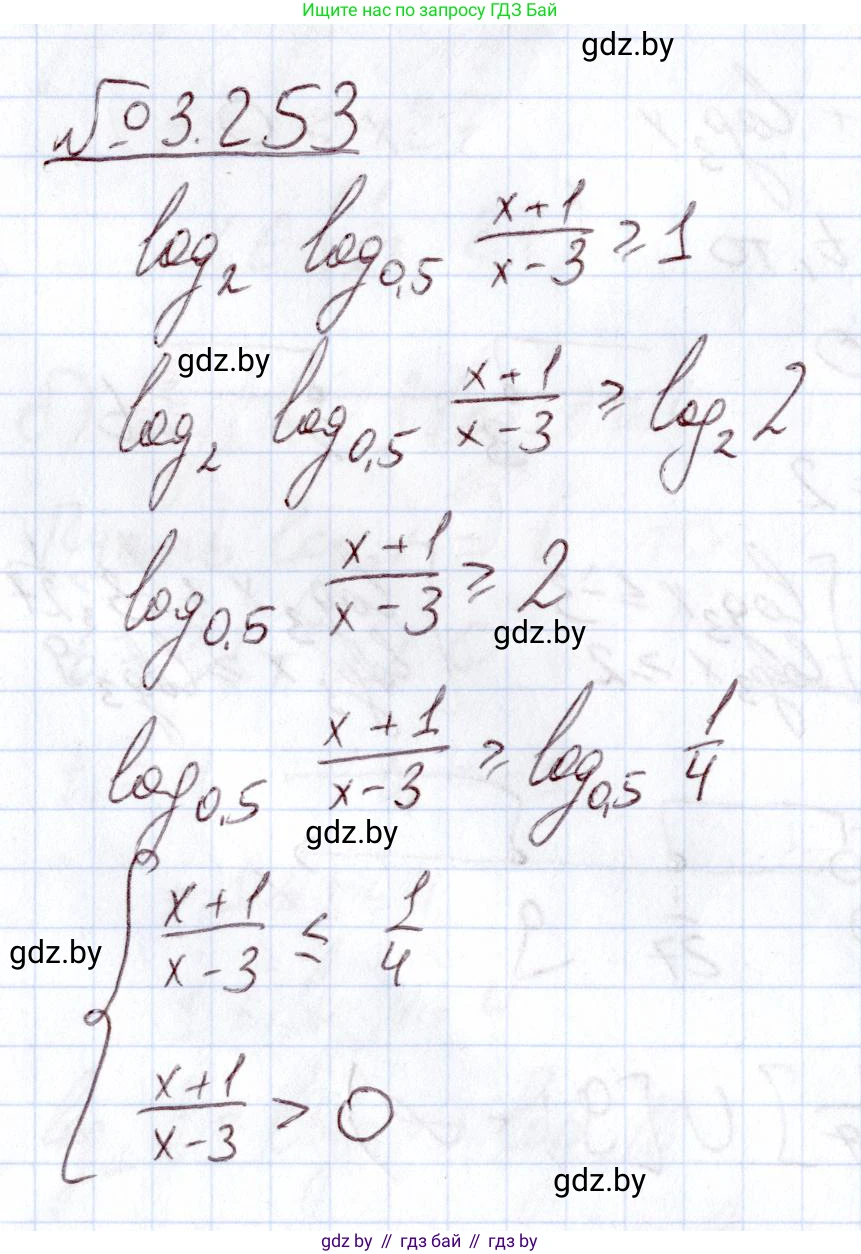 Ищите нас по запросу ГДЗ Бай
gdz.by
№ 3.253
log₂ log₀,₅ (x+1)/(x-3) ≥ 1
gdz.by
log₂ log₀,₅ (x+1)/(x-3) ≥ log₂ 2
log₀,₅ (x+1)/(x-3) ≥ 2
gdz.by
log₀,₅ (x+1)/(x-3) ≥ log₀,₅ 1/4
gdz.by
{ (x+1)/(x-3) ≤ 1/4
gdz.by
(x+1)/(x-3) > 0
gdz.by
gdz.by // гдз бай // гдз by